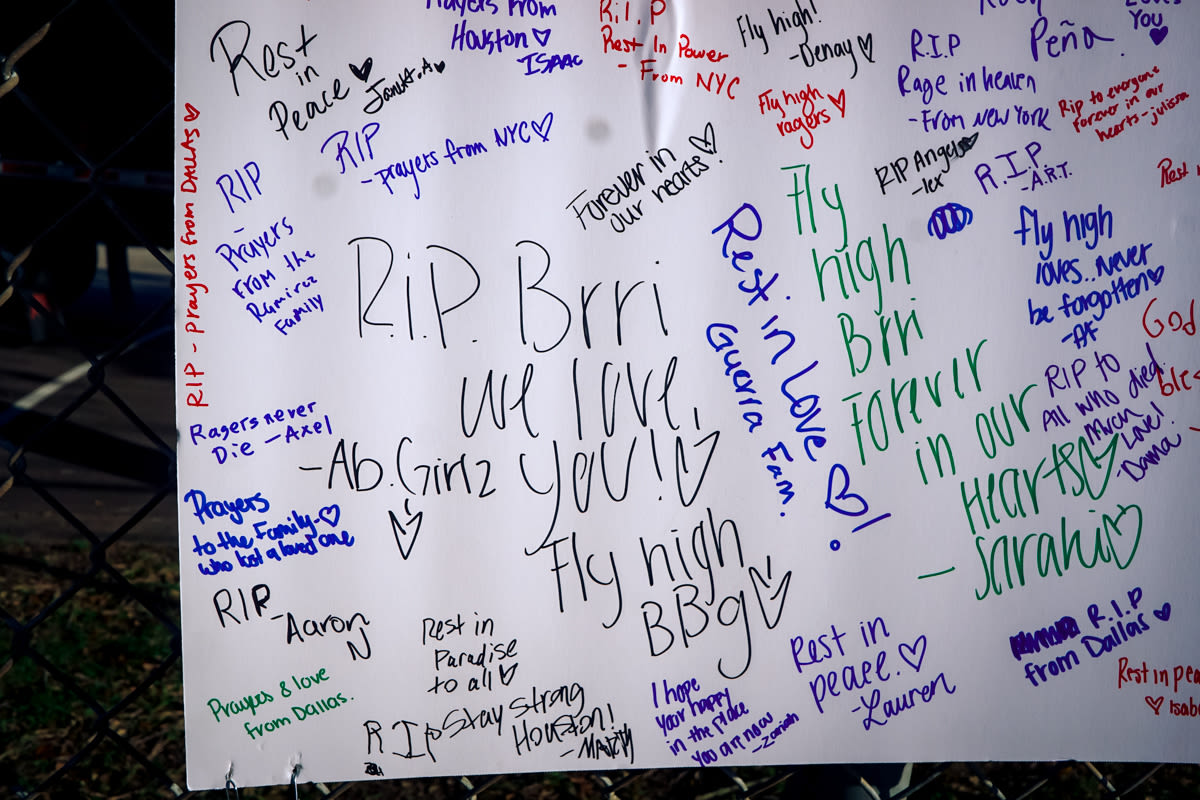 Rest
in
Peace
Prayers from
Houston
ISAAC
R.I.P
Rest In Power
- From NYC
Fly high!
-Denay
R.I.P
Rage in heaven
-From New YORK
Peña
Loves
You
Rip to everyone
forever in our
hearts-julissa
Fly high
ragers
RIP - Prayers from DALLAS
RIP
-Prayers from NYC
RIP
-
Prayers
from the
Ramirez
Family
Forever in
our hearts!
RIP Angels
R.I.P
-A.R.T.
Rest in
R.i.P. Brri
we love
you!
-Ab.Girlz
Fly high
BBg
Rest in Love
Guerra Fam.
Fly
high
Brri
Forever
in our
Hearts
- Sarahi
fly high
loves..Never
be forgotten
-AF
God
RIP to
All who died.
Much
Love!
-Dama
Ragers never
Die -Axel
Prayers
to the Family
who lost a loved one
RIP
-Aaron
N
Rest in
Paradise
to all
Prayers & love
from Dallas.
R.I.P-Stay strong
Houston!
I hope
your happy
in the place
you are now
Rest in
peace.
-Lauren
R.I.P
from Dallas
Rest in pea